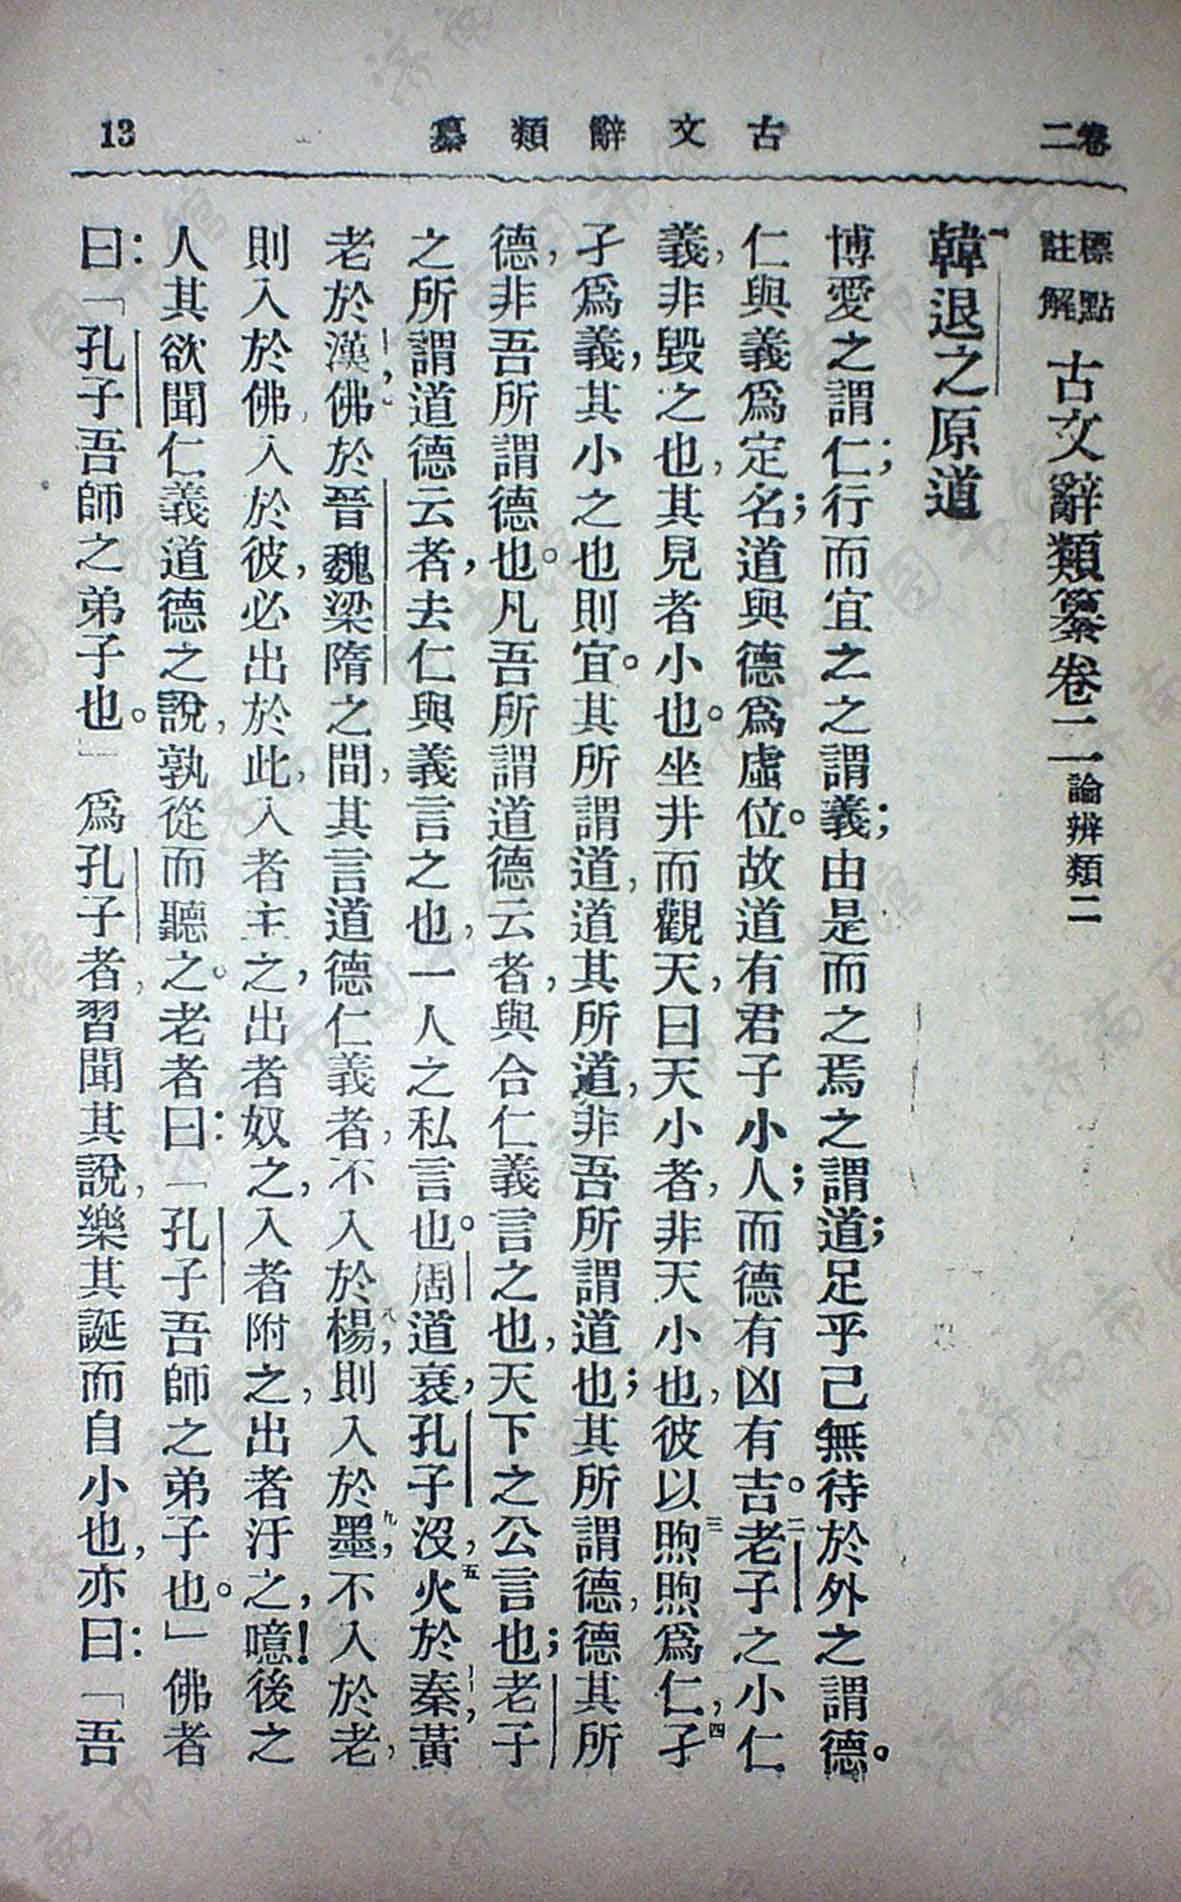 卷二
古文辭類纂
13
標點註解 古文辭類纂卷二 論辨類二
韓退之原道一
博愛之謂仁；行而宜之之謂義；由是而之焉之謂道；足乎己無待於外之謂德。
仁與義爲定名；道與德爲虛位。故道有君子小人；而德有凶有吉。老子二之小仁
義，非毀之也，其見者小也。坐井而觀天，曰天小者，非天小也，彼以煦三煦爲仁，孑四
孑爲義，其小之也則宜。其所謂道，道其所道，非吾所謂道也；其所謂德，德其所
德，非吾所謂德也。凡吾所謂道德云者，與合仁義言之也，天下之公言也；老子
之所謂道德云者，去仁與義言之也，一人之私言也。周道衰，孔子沒，火五於秦，黃
老於漢，佛於晉魏梁隋之間，其言道德仁義者，不入於楊八，則入於墨九，不入於老，
則入於佛，入於彼，必出於此，入者主之，出者奴之，入者附之，出者汙之，噫！後之
人其欲聞仁義道德之說，孰從而聽之。老者曰：「孔子吾師之弟子也。」佛者
曰：「孔子吾師之弟子也。」爲孔子者，習聞其說，樂其誕而自小也，亦曰：「吾